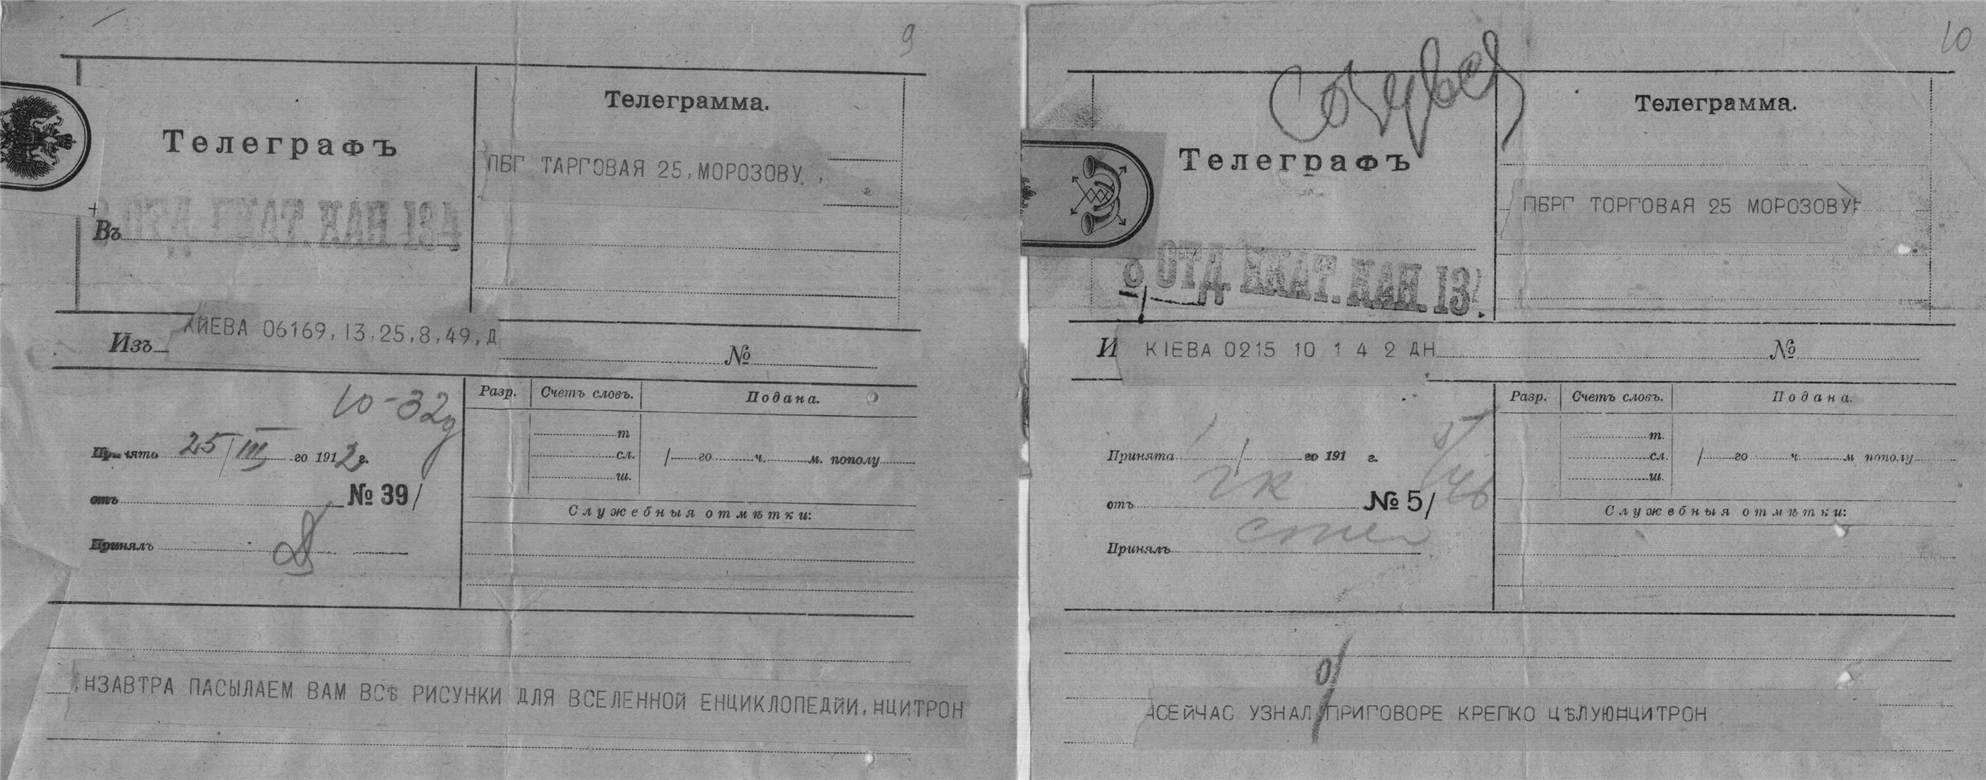 9
Телеграмма.
Телеграфъ
ПБГ ТАРГОВАЯ 25,МОРОЗОВУ ,
Въ
КИЕВА 06169,13,25,8,49,Д
Изъ
№
10-32д
Разр.
Счетъ словъ.
Подана.
т
Принятъ 25/III го 1912 г.
сл.
/ го ч. м. пополу
ш.
отъ № 39/
Служебныя отмѣтки:
Принялъ
,НЗАВТРА ПАСЫЛАЕМ ВАМ ВСѢ РИСУНКИ ДЛЯ ВСЕЛЕННОЙ ЕНЦИКЛОПЕДІИ,НЦИТРОН
10
Телеграмма.
Телеграфъ
ПБРГ ТОРГОВАЯ 25 МОРОЗОВУ
8 ОТД. ЕКАТ. КАН. 13
И КІЕВА 0215 10 1 4 2 ДН
№
Разр.
Счетъ словъ.
Подана.
т.
Принята / го 191 г.
сл.
/ го ч. м пополу
ш.
отъ № 5/
Служебныя отмѣтки:
Принялъ
СЕЙЧАС УЗНАЛ О ПРИГОВОРЕ КРЕПКО ЦѢЛУЮНЦИТРОН